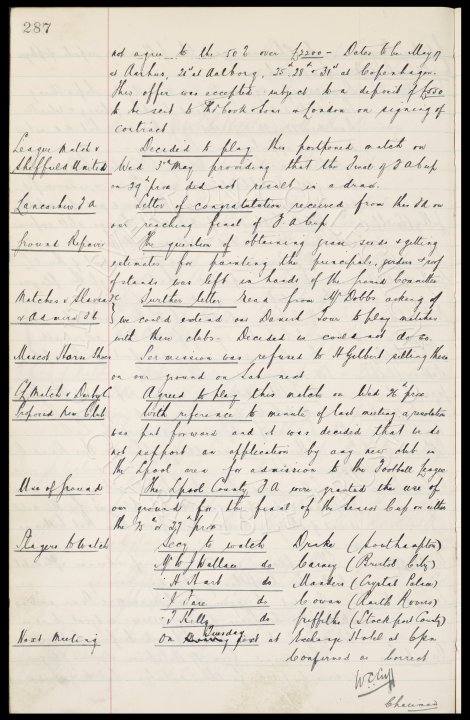 287
not agree to the 50% over £2200 - Dates to be May
at Aarhus, 21st at Aalborg, 25th, 28th & 31st at Copenhagen.
This offer was accepted subject to a deposit of £550
to be sent to Thos Cook & Sons London on signing of
contract
League Match v Decided to play this postponed match on
Sheffield United Wed 3rd May providing that the Final of F A Cup
on 29th prox did not result in a draw.
Lancashire F A Letter of congratulation received from the Ld on
our reaching final of F A Cup
Ground Repairs The question of obtaining grass seeds & getting
estimates for painting the principals, girders & roof
of stands was left in hands of the ground Committee
Matches v Further letter read from Mr Dobbs asking if
we could extend our Danish Tour to play matches
with these clubs. Decided we could not do so.
Mascot Horse Shoes Permission was refused to H Gilbert selling these
on our ground on Sat next
Lg Match v Derby C. Agreed to play this match on Wed 26th prox
Proposed New Club With reference to minute of last meeting a resolution
was put forward and it was decided that we do
not support an application by any new club in
the Lpool area for admission to the Football League
Use of Ground The Lpool County F A were granted the use of
our ground for the final of the Senior Cup on either
the or 27th prox
Players to Watch Secy to watch Drake (Southampton)
Mr W J Wallace do Carney (Bristol City)
" H Hart do Manders (Crystal Palace)
" do Cowan (Raith Rovers)
" T Kelly do Griffiths (Stockport County)
Next Meeting On Tuesday next at Exchange Hotel at 6pm
Confirmed as Correct
W.C. Cuff
Chairman